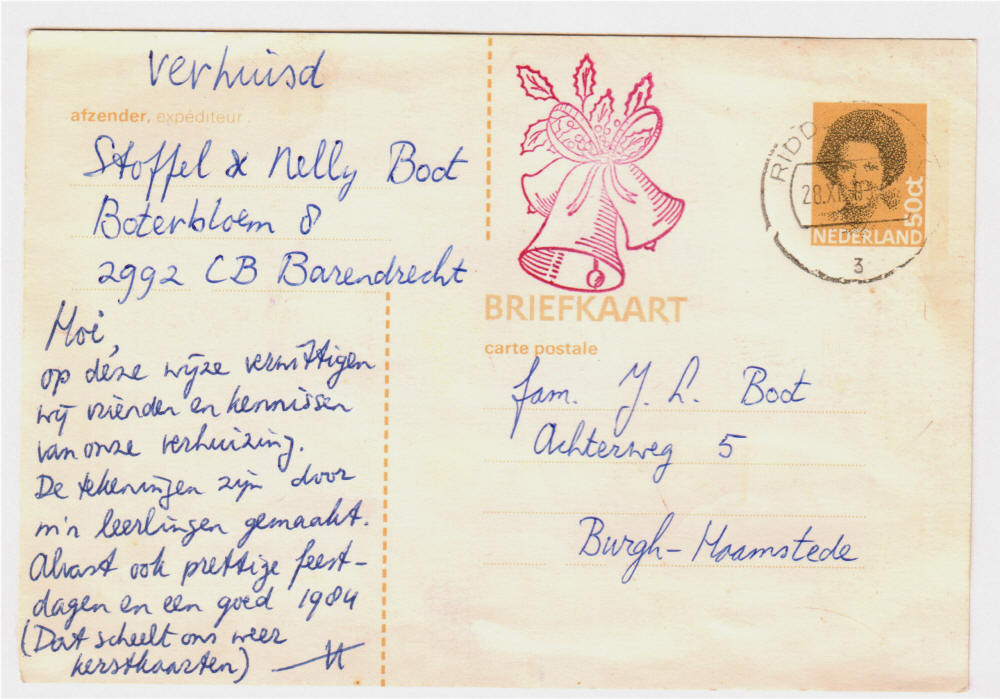 verhuisd
afzender, expéditeur
Stoffel & Nelly Boot
Boterbloem 8
2992 CB Barendrecht
Hoi,
op deze wijze verwittigen
wij vrienden en kennissen
van onze verhuizing.
De tekeningen zijn door
m'n leerlingen gemaakt.
Alvast ook prettige feest-
dagen en een goed 1984
(Dat scheelt ons weer
kerstkaarten)
RIDD
28.XI
3
50ct
NEDERLAND
BRIEFKAART
carte postale
fam. J. L. Boot
Achterweg 5
Burgh-Haamstede